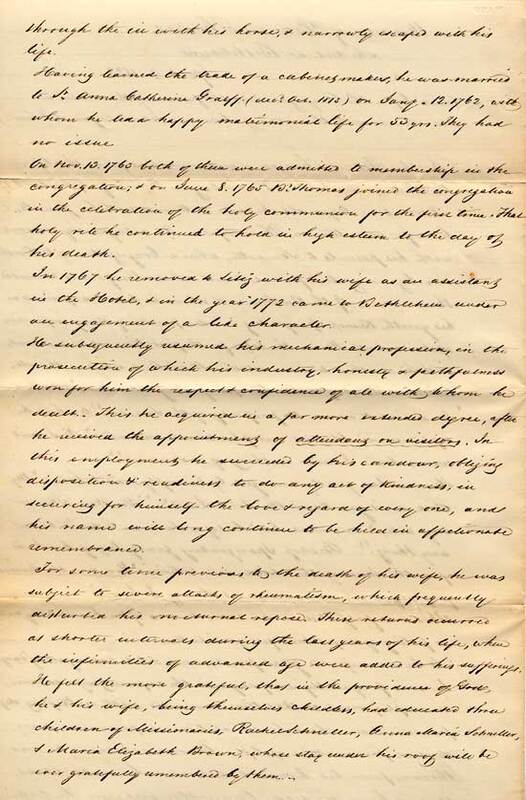 through the ice with his horse, & narrowly escaped with his
life.
Having learned the trade of a cabinetmaker, he was married
to Sr. Anna Catherine Graeff (dec'd Oct. 1815) on Jany. 12. 1762, with
whom he led a happy matrimonial life for 53 yrs. They had
no issue
On Nov. 13. 1763 both of them were admitted to membership in the
congregation; & on June 8. 1765 Br. Thomas joined the congregation
in the celebration of the holy communion for the first time. That
holy rite he continued to hold in high esteem to the day of
his death.
In 1767 he removed to Litiz with his wife as an assistant
in the Hotel, & in the year 1772 came to Bethlehem under
an engagement of a like character.
He subsequently resumed his mechanical profession, in the
prosecution of which his industry, honesty & faithfulness
won for him the respect & confidence of all with whom he
dealt. This he acquired in a far more extended degree, after
he received the appointment of attendant on visitors. In
this employment he succeeded by his candour, obliging
disposition & readiness to do any act of kindness, in
securing for himself the love & regard of every one, and
his name will long continue to be held in affectionate
remembrance.
For some time previous to the death of his wife, he was
subject to severe attacks of rheumatism, which frequently
disturbed his nocturnal repose. These returns occurred
at shorter intervals during the last years of his life, when
the infirmities of advanced age were added to his sufferings.
He felt the more grateful, that in the providence of God,
he & his wife, being themselves childless, had educated three
children of Missionaries, Rachel Schneller, Anna Maria Schneller,
& Maria Elizabeth Brown, whose stay under his roof will be
ever gratefully remembered by them.